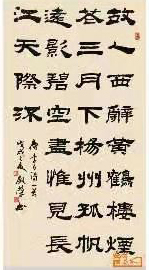 故人西辭黃鶴樓煙
花三月下楊州孤帆
遠影碧空盡惟見長
江天際流
唐李白诗一首
戊戌之夏 书